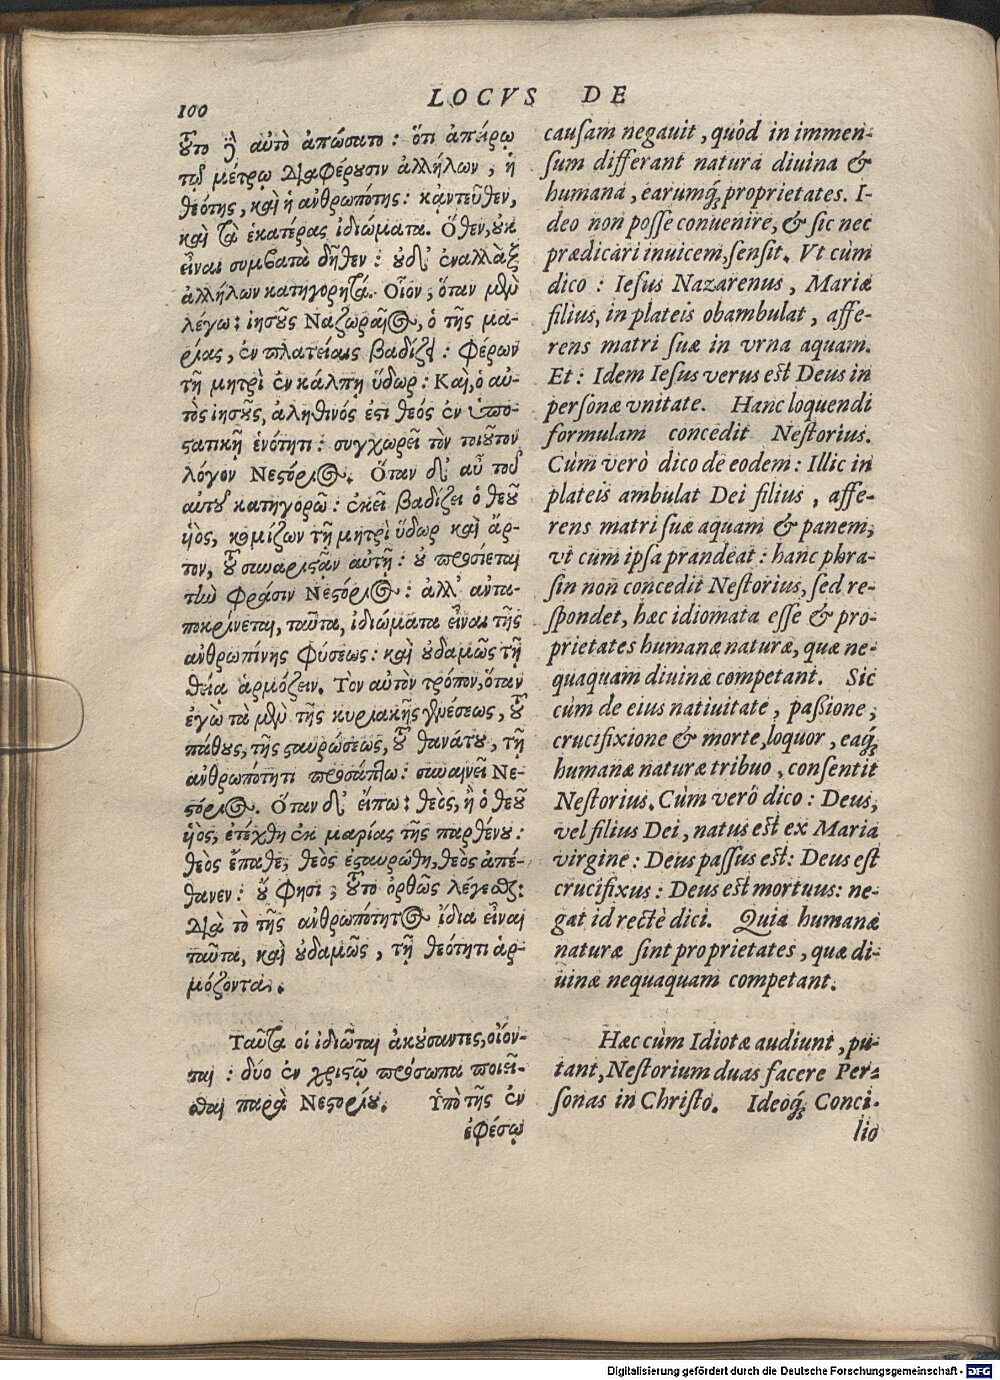 100
LOCVS DE
τοῦτο δὲ αὐτὸ ἀπώσατο: ὅτι ἀπείρῳ
τῷ μέτρῳ διαφέρουσιν ἀλλήλων, ἡ
θεότης, καὶ ἡ ἀνθρωπότης: κἀντεῦθεν,
καὶ τὰ ἑκατέρας ἰδιώματα. Ὅθεν, οὐκ
εἶναι συμβατὰ δῆθεν: οὐδ' ἐναλλὰξ
ἀλλήλων κατηγορητά. Οἷον, ὅταν μὲν
λέγω: ἰησοῦς Ναζωραῖος, ὁ τῆς μα-
ρίας, ἐν πλατείαις βαδίζει: φέρων
τῇ μητρὶ ἐν κάλπῃ ὕδωρ: Καὶ, ὁ αὐ-
τὸς ἰησοῦς, ἀληθινός ἐστι θεός ἐν ὑπο-
στατικῇ ἑνότητι: συγχωρεῖ τὸν τοιοῦτον
λόγον Νεστόριος. Ὅταν δ' αὖ τοῦ
αὐτοῦ κατηγορῶ: ἐκεῖ βαδίζει ὁ θεοῦ
υἱὸς, κομίζων τῇ μητρὶ ὕδωρ καὶ ἄρ-
τον, τοῦ συναριστᾶν αὐτῇ: οὐ προσίεται
τὴν φράσιν Νεστόριος: ἀλλ' ἀντα-
ποκρίνεται, ταῦτα, ἰδιώματα εἶναι τῆς
ἀνθρωπίνης φύσεως: καὶ οὐδαμῶς τῇ
θείᾳ ἁρμόζειν. Τὸν αὐτὸν τρόπον, ὅταν
ἐγὼ τὰ μὲν τῆς κυριακῆς γενέσεως, τοῦ
πάθους, τῆς σταυρώσεως, τοῦ θανάτου, τῇ
ἀνθρωπότητι προσάπτω: συναινεῖ Νε-
στόριος. Ὅταν δ' εἴπω: θεὸς, ἢ ὁ θεοῦ
υἱὸς, ἐτέχθη ἐκ μαρίας τῆς παρθένου:
θεὸς ἔπαθε, θεὸς ἐσταυρώθη, θεὸς ἀπέ-
θανεν: οὔ φησι, τοῦτο ὀρθῶς λέγεσθαι:
Διὰ τὸ τῆς ἀνθρωπότητος ἴδια εἶναι
ταῦτα, καὶ οὐδαμῶς, τῇ θεότητι ἁρ-
μόζοντα.
Ταῦτα οἱ ἰδιῶται ἀκούσαντες, οἴον-
ται: δύο ἐν χριστῷ πρόσωπα ποιεῖ-
σθαι παρὰ Νεστορίου. Ὑπὸ τῆς ἐν
ἐφέσῳ
causam negauit, quòd in immen-
sum differant natura diuina &
humana, earumq́; proprietates. I-
deo non posse conuenire, & sic nec
prædicari inuicem, sensit. Vt cùm
dico: Iesus Nazarenus, Mariæ
filius, in plateis obambulat, affe-
rens matri suæ in vrna aquam.
Et: Idem Iesus verus est Deus in
personæ vnitate. Hanc loquendi
formulam concedit Nestorius.
Cùm verò dico de eodem: Illic in
plateis ambulat Dei filius, affe-
rens matri suæ aquam & panem,
vt cùm ipsa prandeat: hanc phra-
sin non concedit Nestorius, sed re-
spondet, hæc idiomata esse & pro-
prietates humanæ naturæ, quæ ne-
quaquam diuinæ competant. Sic
cùm de eius natiuitate, passione,
crucifixione & morte, loquor, eaq́;
humanæ naturæ tribuo, consentit
Nestorius. Cùm verò dico: Deus,
vel filius Dei, natus est ex Maria
virgine: Deus passus est: Deus est
crucifixus: Deus est mortuus: ne-
gat id rectè dici. Quia humanæ
naturæ sint proprietates, quæ di-
uinæ nequaquam competant.
Hæc cùm Idiotæ audiunt, pu-
tant, Nestorium duas facere Per-
sonas in Christo. Ideoq́; Conci-
lio
Digitalisierung gefördert durch die Deutsche Forschungsgemeinschaft - DFG